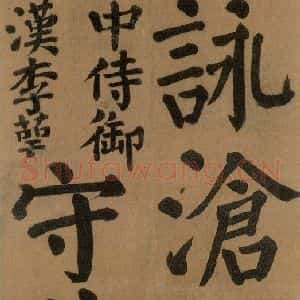 詠滄
中侍御
漢李萼
守
Shufawang.CN